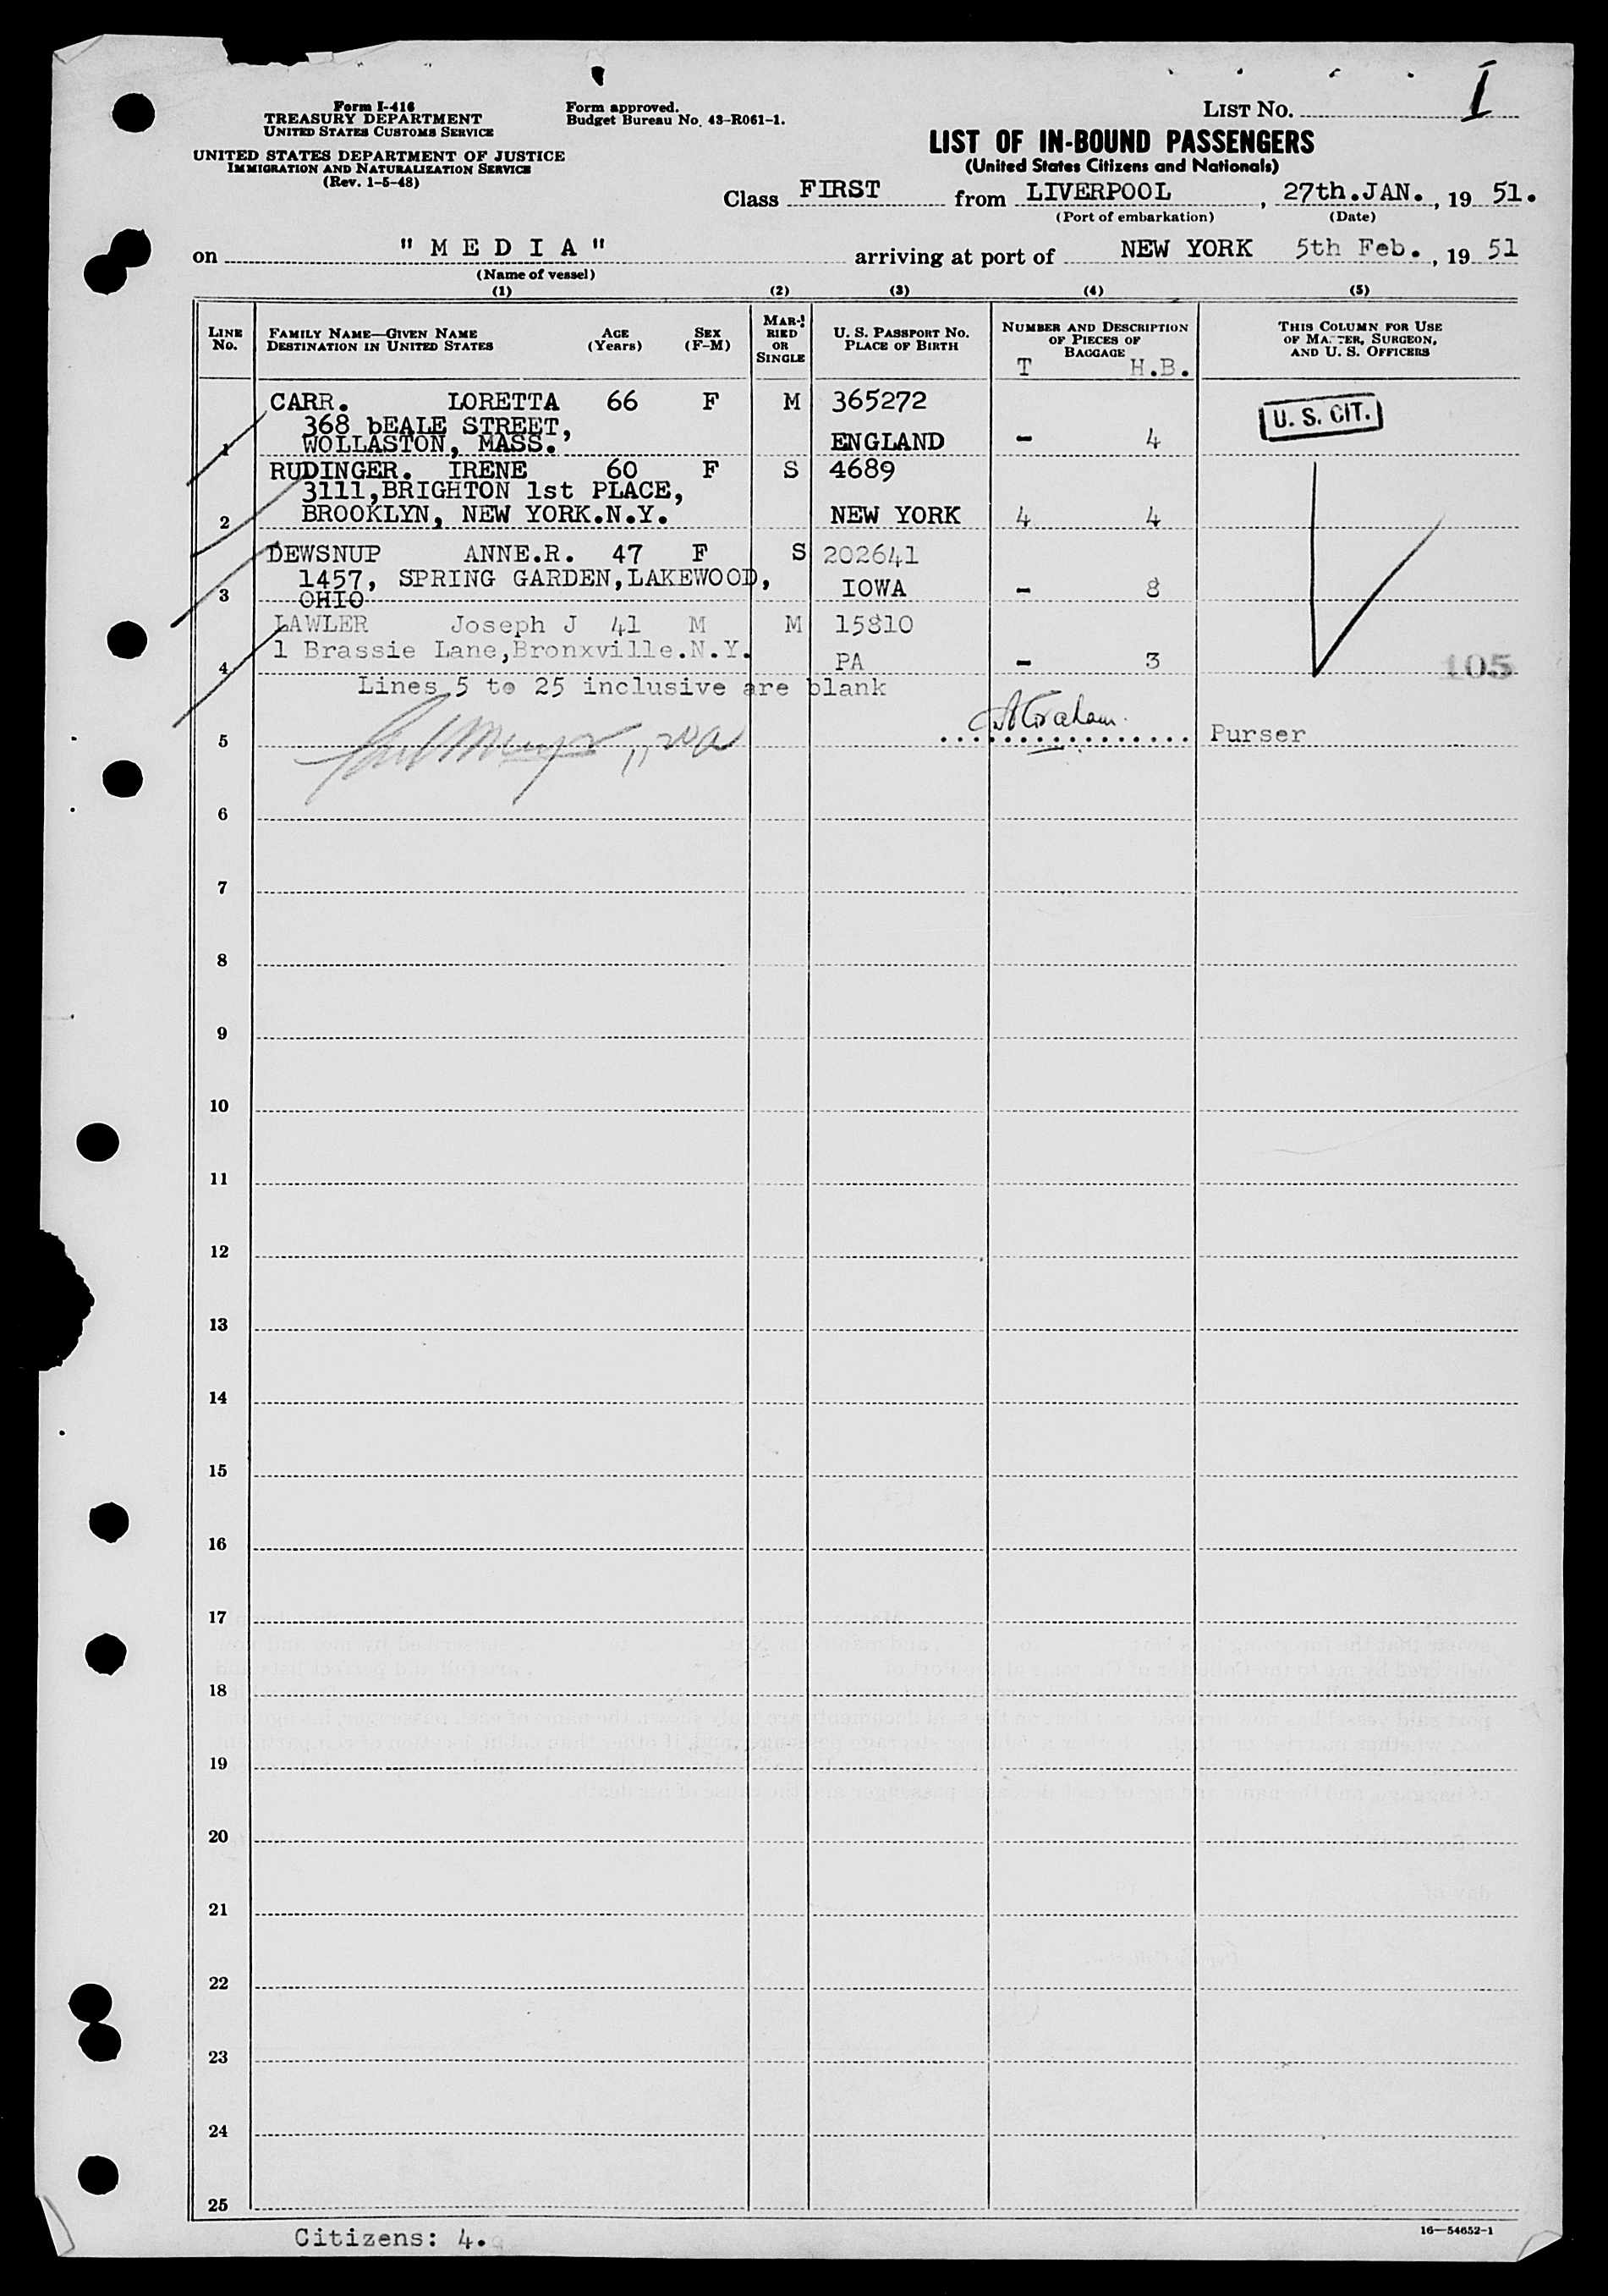 Form I-416
TREASURY DEPARTMENT
UNITED STATES CUSTOMS SERVICE
UNITED STATES DEPARTMENT OF JUSTICE
IMMIGRATION AND NATURALIZATION SERVICE
(Rev. 1-5-48)
Form approved.
Budget Bureau No. 43-R061-1.
LIST NO. 1
LIST OF IN-BOUND PASSENGERS
(United States Citizens and Nationals)
Class FIRST from LIVERPOOL, 27th.JAN., 19 51.
(Port of embarkation) (Date)
on "MEDIA" arriving at port of NEW YORK 5th Feb., 19 51
(Name of vessel)
(1) (2) (3) (4) (5)
LINE NO. FAMILY NAME—GIVEN NAME DESTINATION IN UNITED STATES AGE (Years) SEX (F-M) MARRIED OR SINGLE U. S. PASSPORT NO. PLACE OF BIRTH NUMBER AND DESCRIPTION OF PIECES OF BAGGAGE THIS COLUMN FOR USE OF MASTER, SURGEON, AND U. S. OFFICERS
T H.B.
CARR. LORETTA 66 F M 365272 U. S. CIT.
368 bEALE STREET,
1 WOLLASTON, MASS. ENGLAND - 4
RUDINGER. IRENE 60 F S 4689
3111,BRIGHTON 1st PLACE,
2 BROOKLYN, NEW YORK.N.Y. NEW YORK 4 4
DEWSNUP ANNE.R. 47 F S 202641
1457, SPRING GARDEN,LAKEWOOD,
3 OHIO IOWA - 8
LAWLER Joseph J 41 M M 15810
1 Brassie Lane,Bronxville.N.Y.
4 PA - 3 105
Lines 5 to 25 inclusive are blank
5 Purser
6
7
8
9
10
11
12
13
14
15
16
17
18
19
20
21
22
23
24
25
Citizens: 4.
16—54652-1